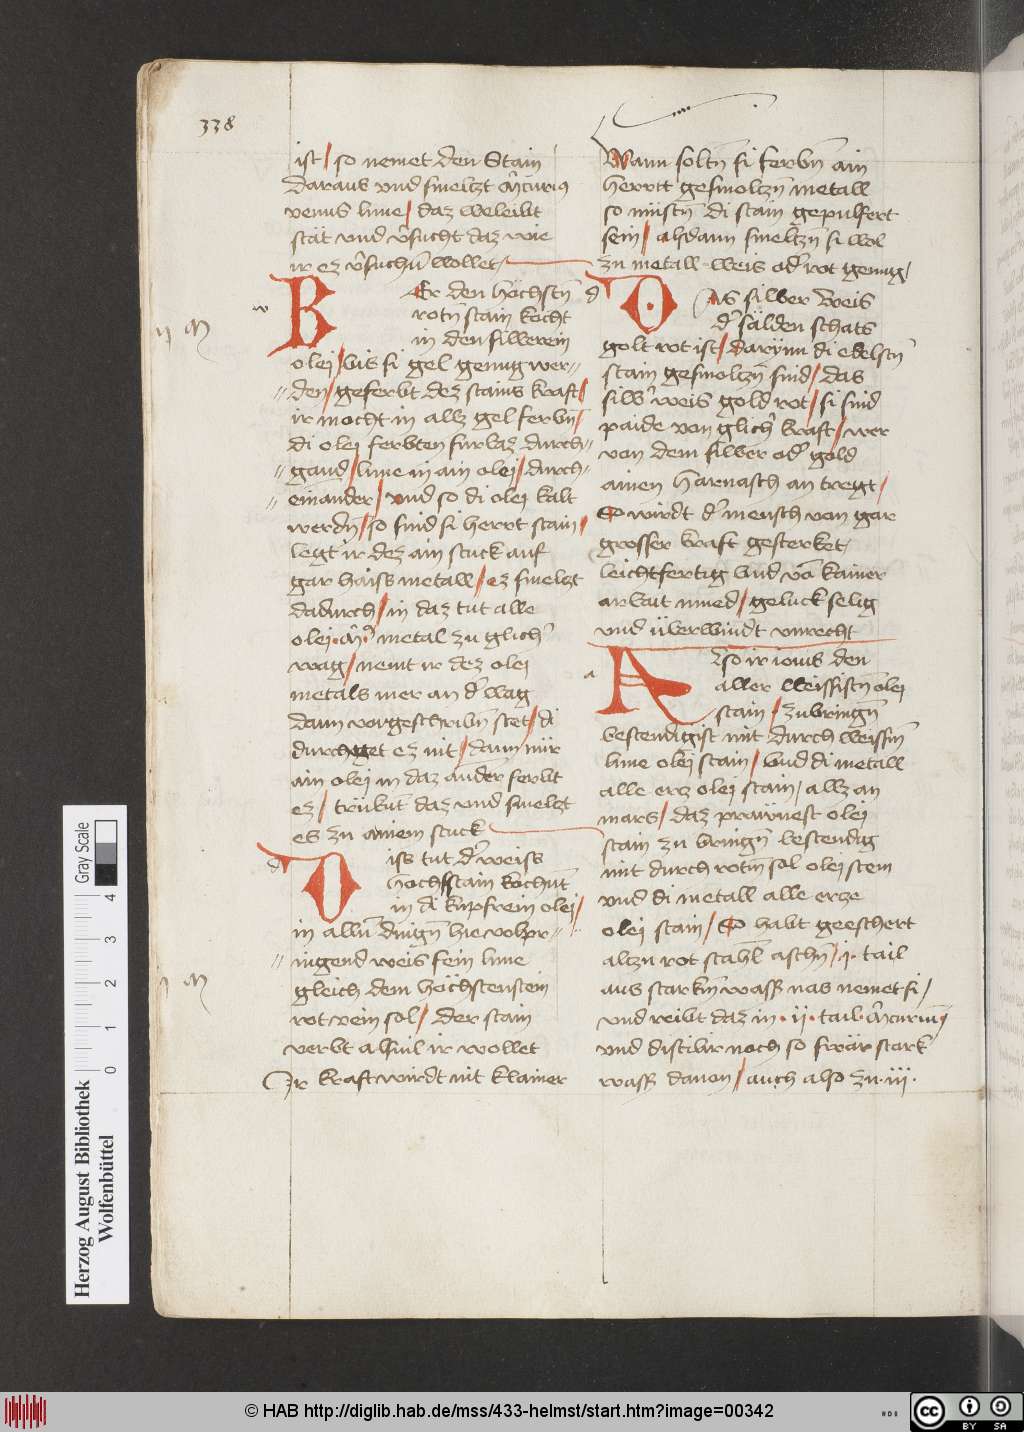 338
ist / so nemet den Stain
daraus vnd smeltzt m̄curiꝰ
venus lune / daz weleibt
stät vnd v̄sucht daz wie
ir ez v̄suchn̄ wollet
BEr den höchstn̄
rotn̄ stain kocht
in den silwerein
olei / bis si gel genug wer-
den / geferbt dez stains kraft /
ir mocht in allz gel ferbn̄ /
di olei ferbten furbaz durch-
gand / lune in ain olei / durch-
einander / vnd so di olei kalt
werdn̄ / so sind si herrt stain /
legt ir dez ain stuck auf
gar haiss metall / ez smeltzt
dadurch / in daz tut alle
olei metal zu glich̄
wag / nemt ir dez olei
metals mer an d̄ wag
dann vorgeschribn̄ stet / di
durchget ez nit / dann nür
ain olei in daz ander ferbt
ez / trübnt daz vnd smeltzt
es zu ainem stuck
Diss tut d̄ weiss
hochsstain kochnt
in di kupfrein olei /
in alln̄ dingn̄ hie volpr-
ingend weis sein lune
gleich dem höchstenstein
rot vein sol / der stain
verbt alsuil ir wollet
Ir kraft wirdt nit klainer
Wann soltn̄ si ferbn̄ ain
herrtt gesmoltzn̄ metall
so müstn̄ di stain gepulfert
sein / alsdann smeltzn̄ si wol
zu metall weis od̄ rot genug /
DAs silber weis
d̄ sälden schats
golt rot ist / darynn di edelstn̄
stain gesmoltzn̄ sind / das
silb̄ weis gold rot / si sind
paide von glich̄ kraft / wer
von dem silber od̄ gold
ainen Harnasch an tregt /
So wirdt d̄ mensch von gar
grosser kraft gesterket /
leichtfertig vnd vō kainer
arbait mued / geluckselig
vnd überwindt vnrecht
Also ir iouis den
aller weissistn̄ olei
stain / zubringn̄
bestendigist mit durch weissn̄
lune olei stain / vnd di metall
alle erz olei stain / allz an
mars / daz praünest olei
stain zu bringn̄ bestendig
mit durch rotn̄ sol olei stein
vnd di metall alle erze
olei stain / So habt geeschert
altzu rot stahl aschn̄ / i · tail
aus starkm̄ wass̄ nas nemet si /
vnd reibt daz in · ii · tail · m̄curiū /
vnd distilir noch so fixär stark
wass̄ dauon / auch also zu · iii ·
Herzog August Bibliothek
Wolfenbüttel
0 1 2 3 4
Gray Scale
© HAB http://diglib.hab.de/mss/433-helmst/start.htm?image=00342
HAB
cc
BY SA